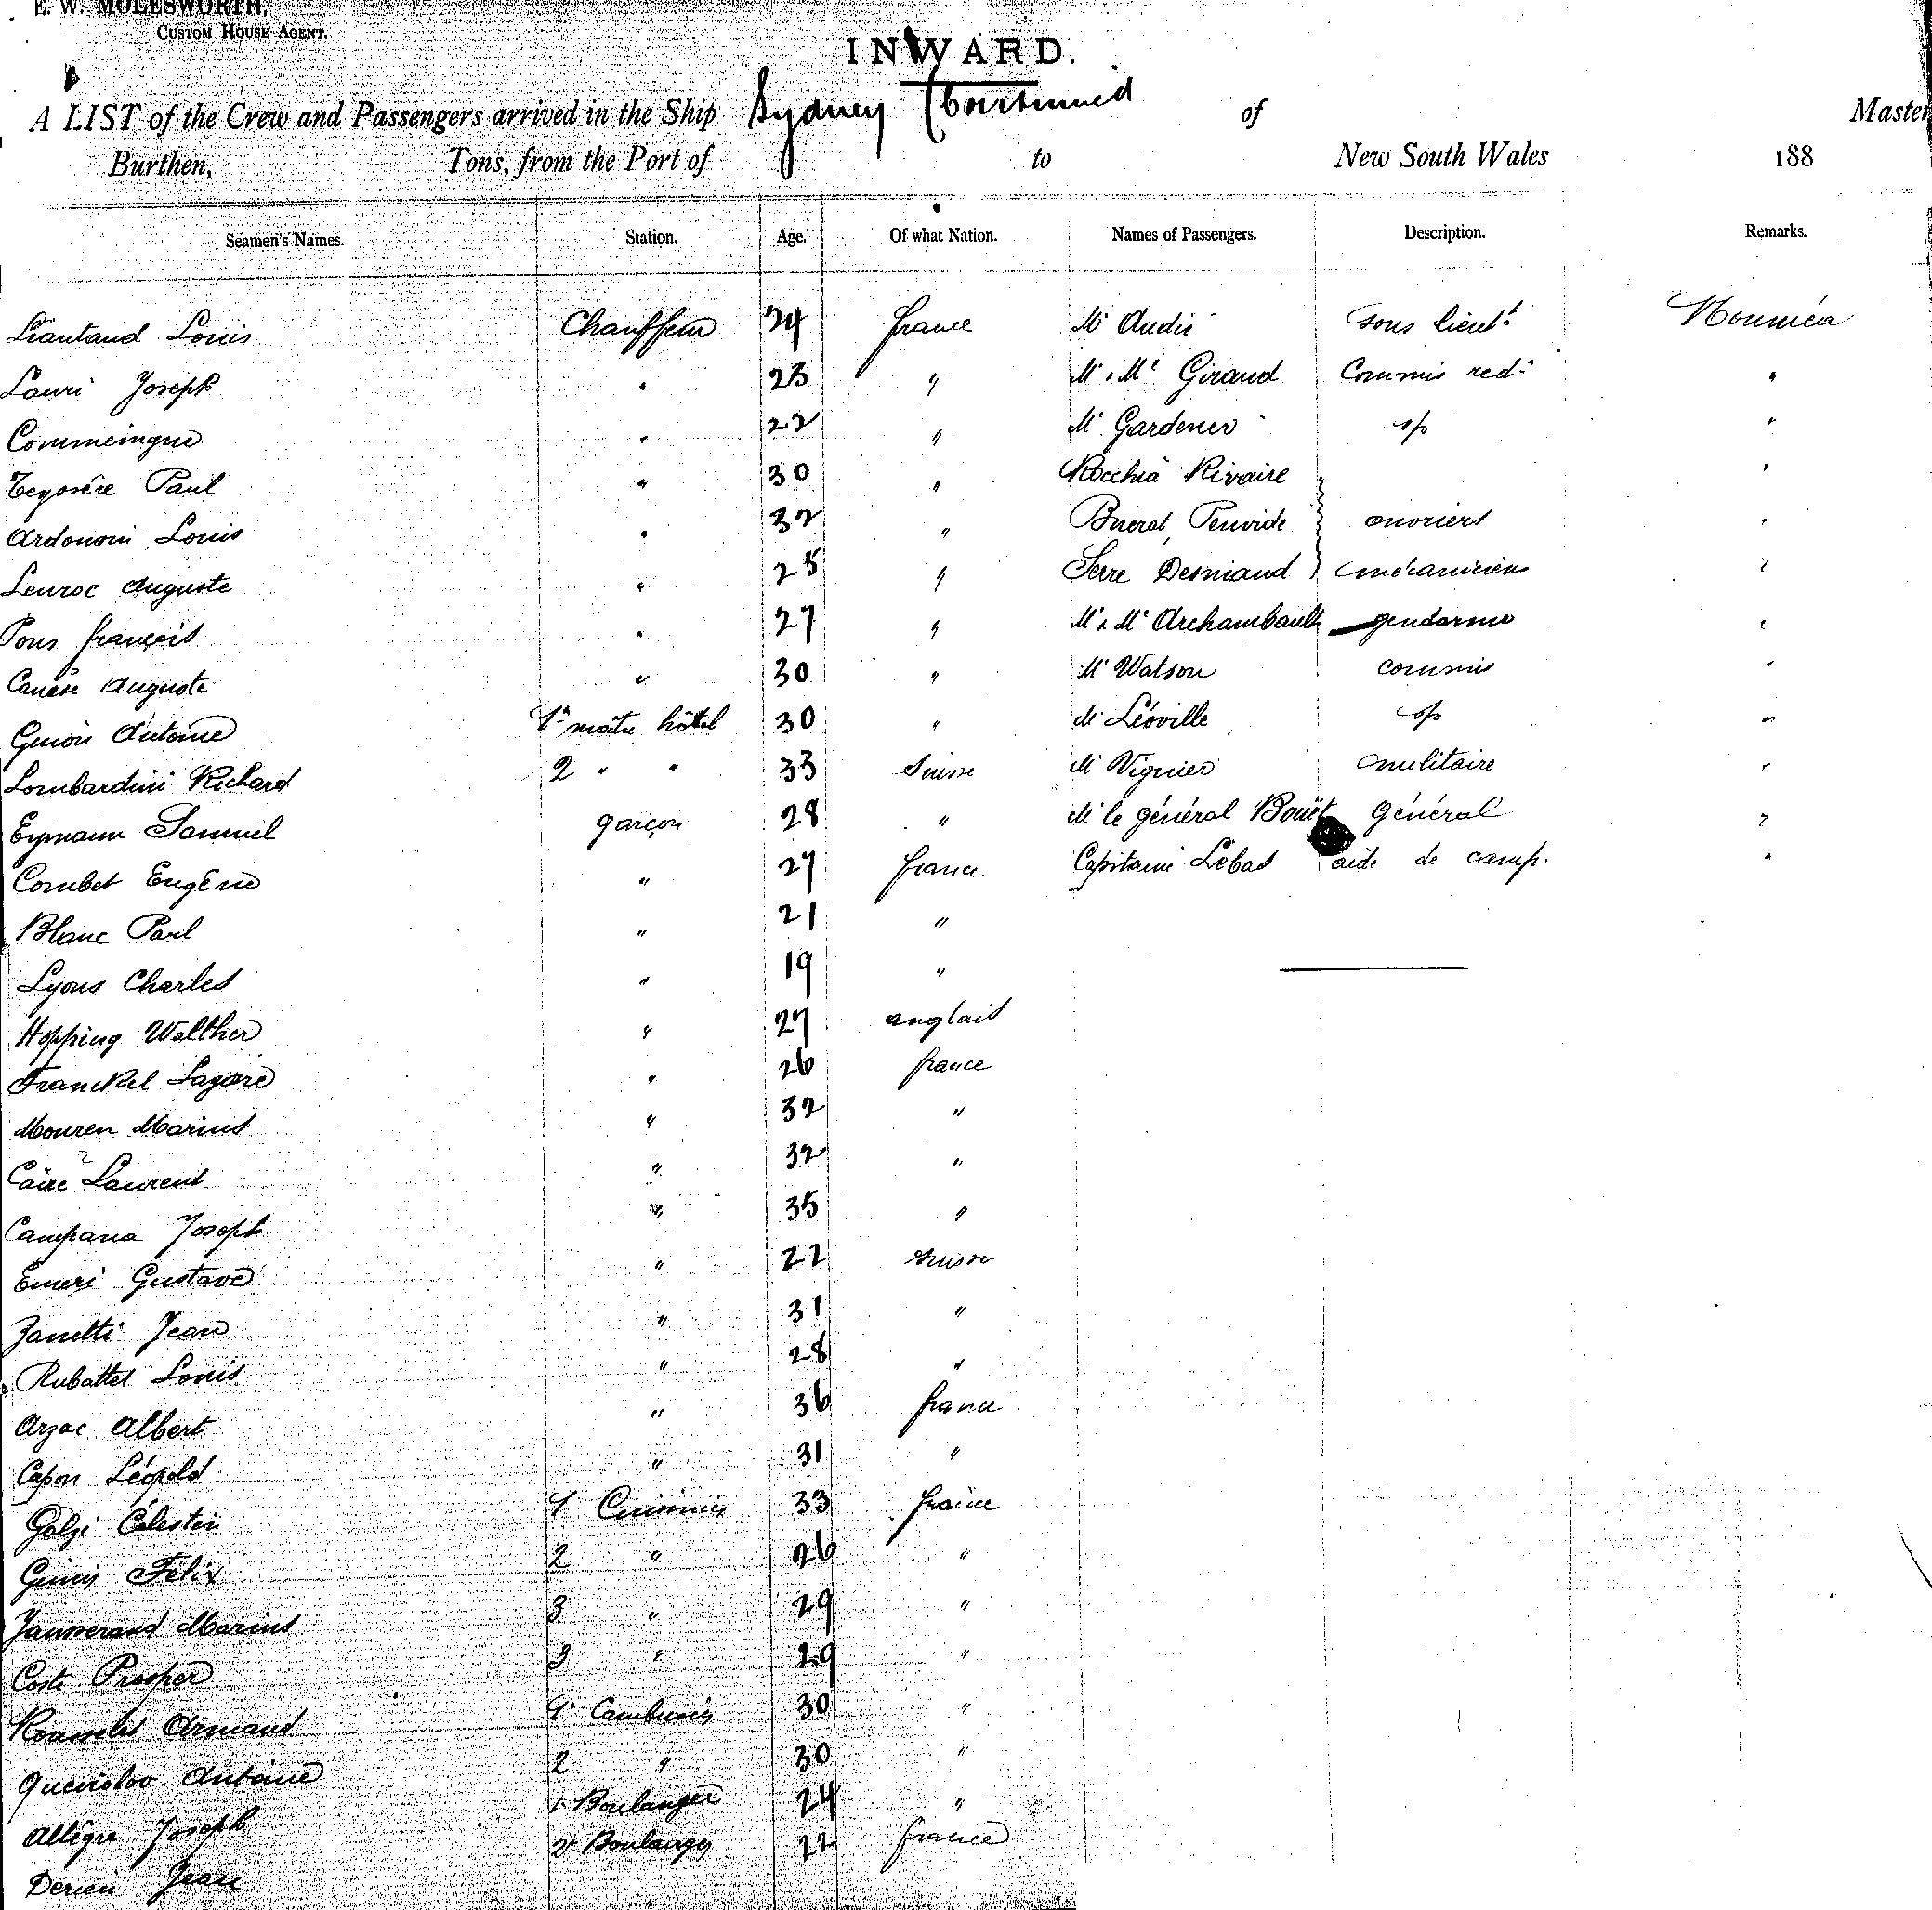 E. W. MOLESWORTH,
CUSTOM HOUSE AGENT.
INWARD.
A LIST of the Crew and Passengers arrived in the Ship Sydney (Continued of Master
Burthen, Tons, from the Port of to New South Wales 188
Seamen's Names. Station. Age. Of what Nation. Names of Passengers. Description. Remarks.
Liautaud Louis Chauffeur 24 france Mr Audié sous lieut. Nouméa
Lauri Joseph " 23 " Mr. Me Giraud Commis red. "
Commeingue " 22 " Mr Gardener "
Teyssère Paul " 30 " Rocchia Rivaire "
Ardouoin Louis " 32 " Buerat, Peuvide ouvriers "
Leuroc Auguste " 25 " Serre Desniaud mécaniciens "
Pons françois " 27 " Mr & Me Archambault gendarme "
Canèse Auguste " 30 " Mr Watson commis "
Guion Antoine 1er maitre hôtel 30 " Mr Léoville "
Lombardini Richard 2 " " 33 Suisse Mr Vignier militaire "
Eymann Samuel garçon 28 " Mr le général Bouët général "
Combet Eugène " 27 france Capitaine Lebas aide de camp. "
Blanc Paul " 21 "
Lyons Charles " 19 "
Hopping Walther " 27 anglais
Franckel Lazare " 26 france
Mouren Marius " 32 "
Caire Laurent " 32 "
Campana Joseph " 35 "
Emeri Gustave " 22 suisse
Zanetti Jean " 31 "
Rubattel Louis " 28 "
Arzac Albert " 36 france
Capon Léopold " 31 "
Golzi Célestin 1 Cuisinier 33 france
Félix 2 " 26 "
Marius 3 " 29 "
Coste Prosper 3 " 29 "
Armand 1r Cambusier 30 "
Antoine 2 " 30 "
Allègre Joseph 1r Boulanger 24 "
Derien Jean 2e Boulanger 22 france